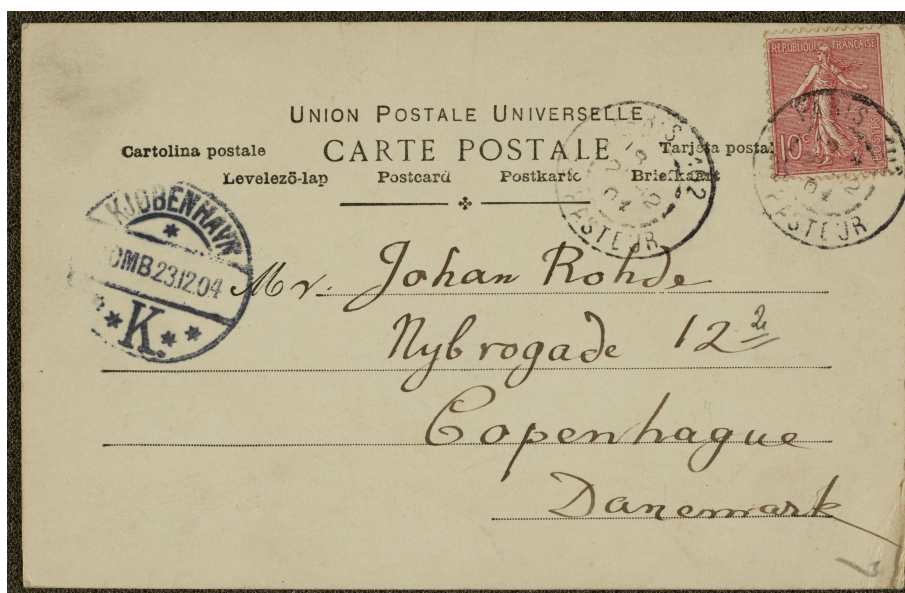 REPUBLIQUE FRANÇAISE
POSTES
10c
UNION POSTALE UNIVERSELLE
CARTE POSTALE
Cartolina postale
Tarjeta postal
Levelező-lap Postcard Postkarte Briefkaart
PARIS
PASTEUR
PARIS
PASTEUR
KJØBENHAVN
OMB 23.12.04
K.
Mr. Johan Rohde
Nybrogade 12 2
Copenhague
Danemark